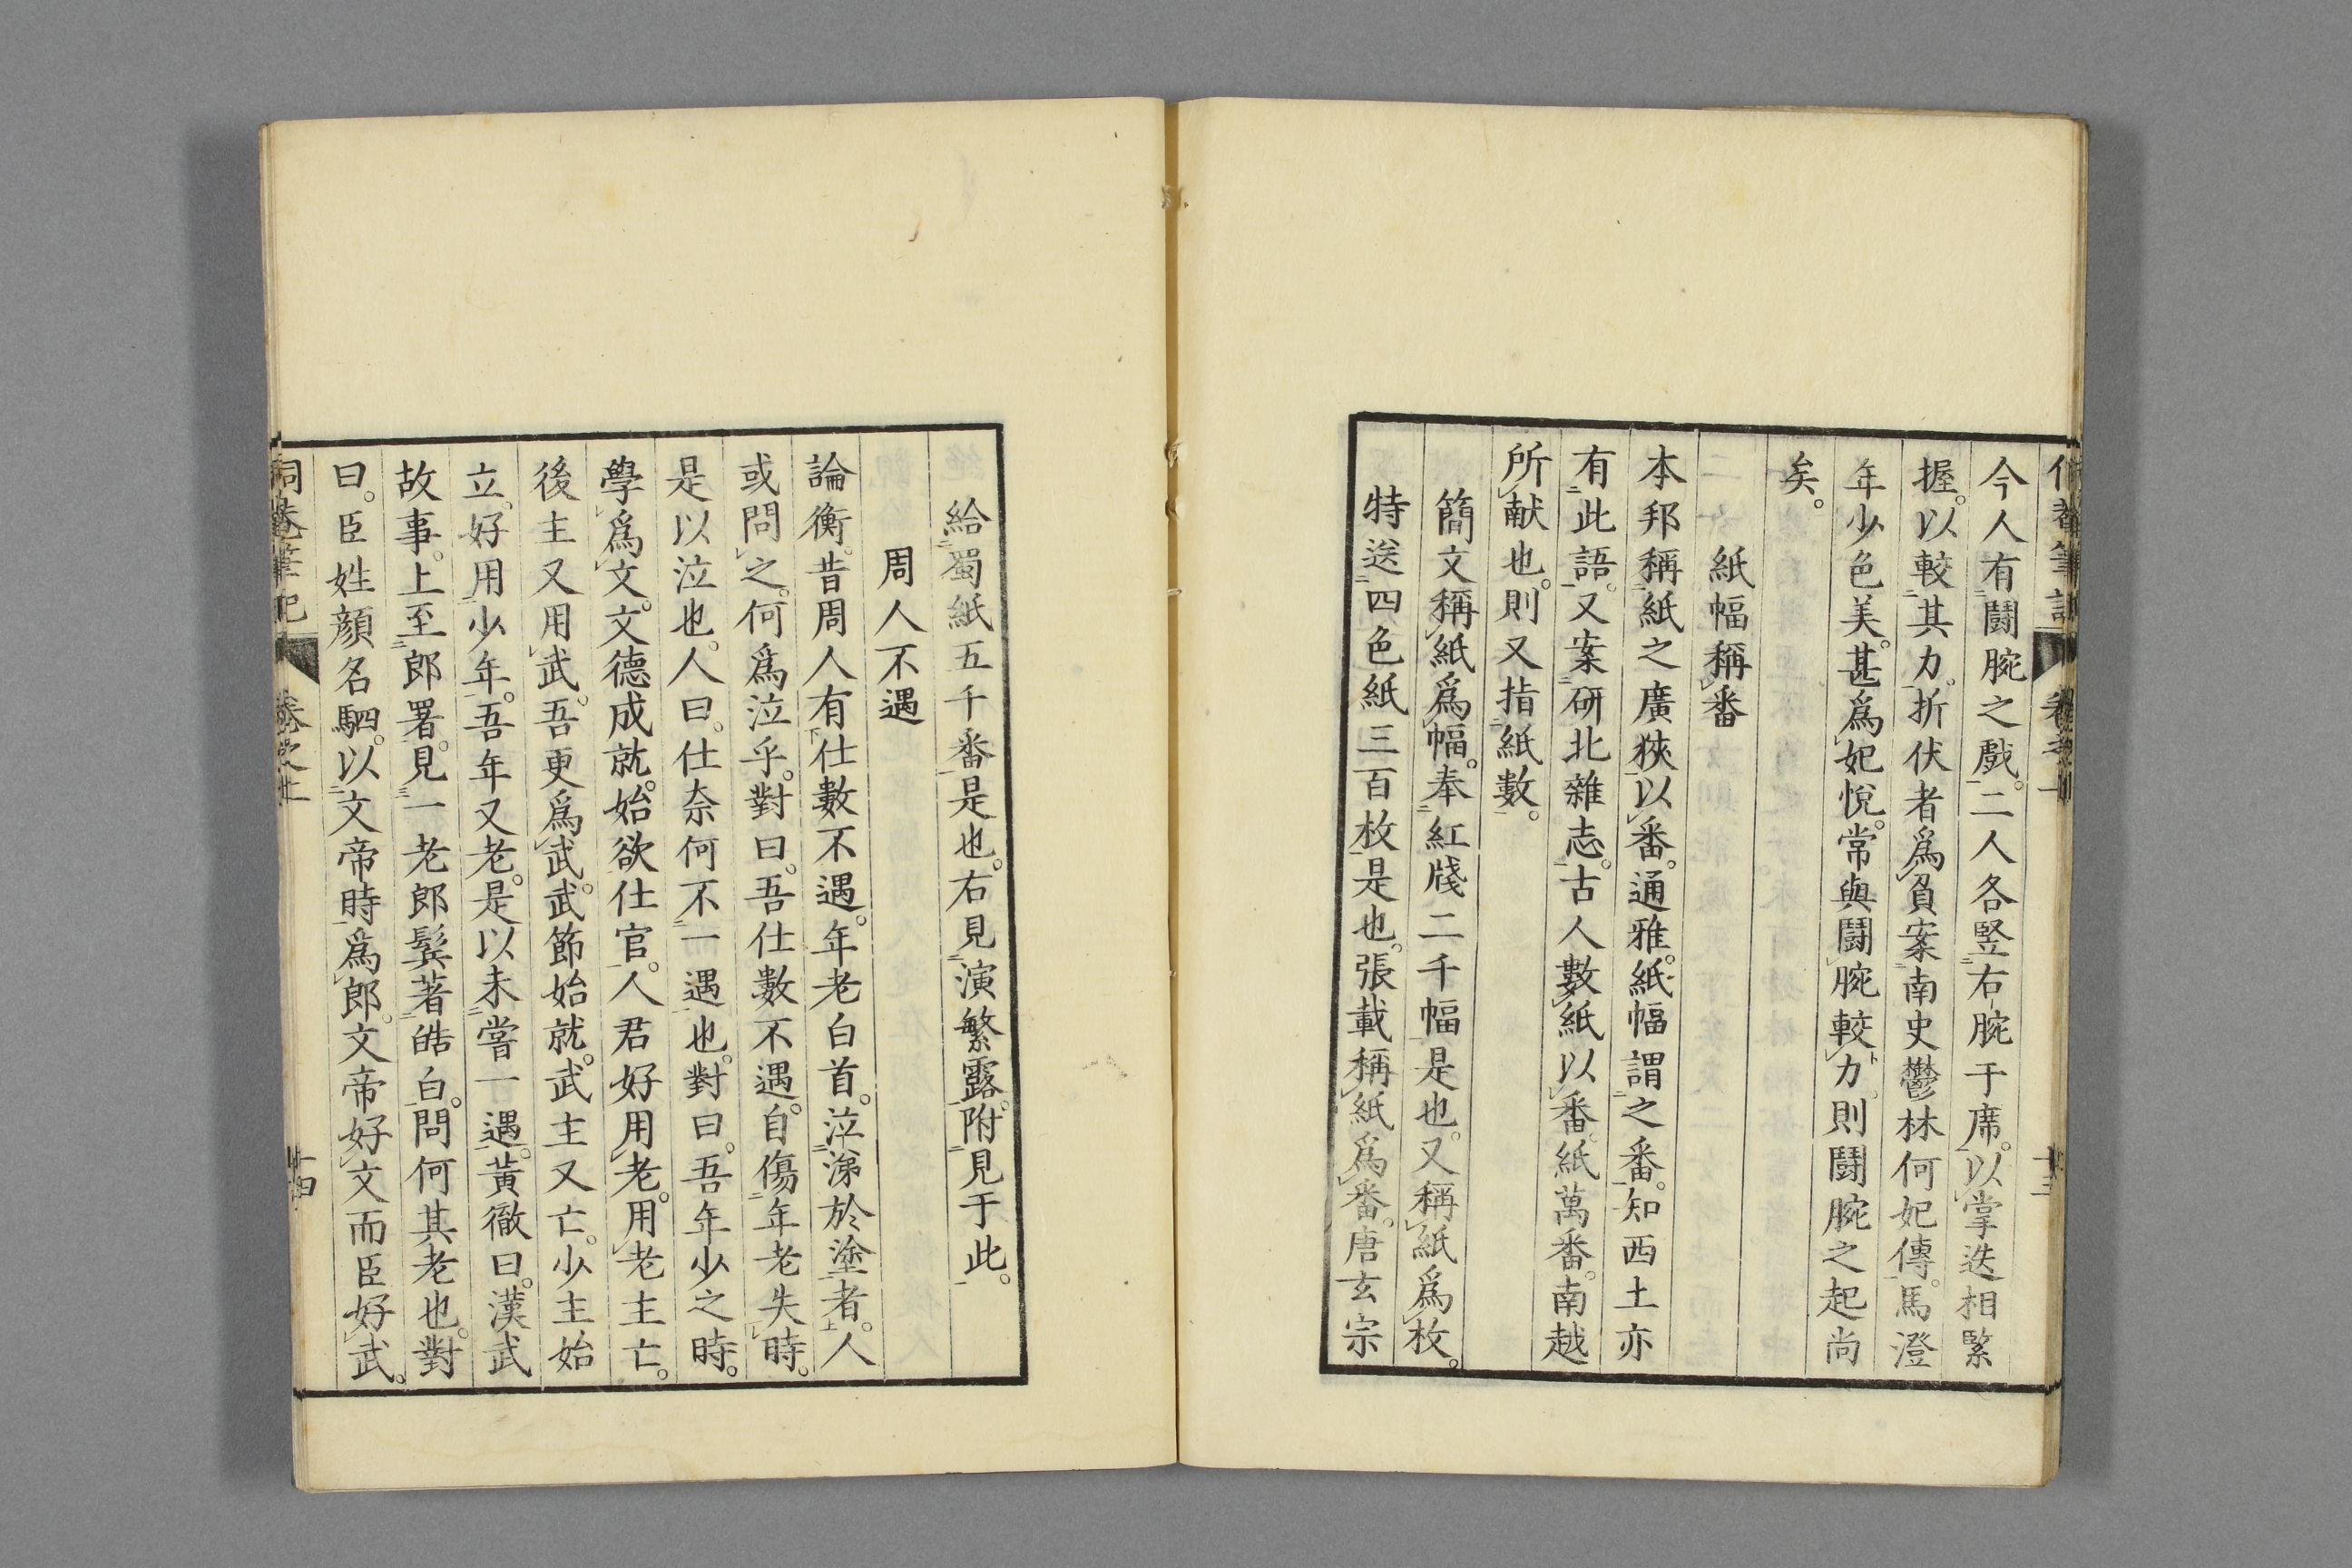 今人有鬪腕之戲。二人各竪右腕于席。以掌迭相緊
握。以較其力。折伏者爲負。案南史鬱林何妃傳。馬澄
年少色美。甚爲妃悅。常與鬪腕較力。則鬪腕之起尚
矣。
紙幅稱番
本邦稱紙之廣狹以番。通雅。紙幅謂之番。知西土亦
有此語。又案研北雜志。古人數紙以番。紙萬番。南越
所献也。則又指紙數。
簡文稱紙爲幅。奉紅牋二千幅是也。又稱紙爲枚。
特送四色紙三百枚是也。張載稱紙爲番。唐玄宗
給蜀紙五千番是也。右見演繁露。附見于此。
周人不遇
論衡。昔周人有仕數不遇。年老白首。泣涕於塗者。人
或問之。何爲泣乎。對曰。吾仕數不遇。自傷年老失時。
是以泣也。人曰。仕奈何不一遇也。對曰。吾年少之時。
學爲文。文德成就。始欲仕官。人君好用老。用老主亡。
後主又用武。吾更爲武。武節始就。武主又亡。少主始
立。好用少年。吾年又老。是以未嘗一遇。黃徹曰。漢武
故事。上至郎署。見一老郎鬂著皓白。問何其老也。對
曰。臣姓顔名駟。以文帝時爲郎。文帝好文而臣好武。
洞菴筆記
卷之上
十四